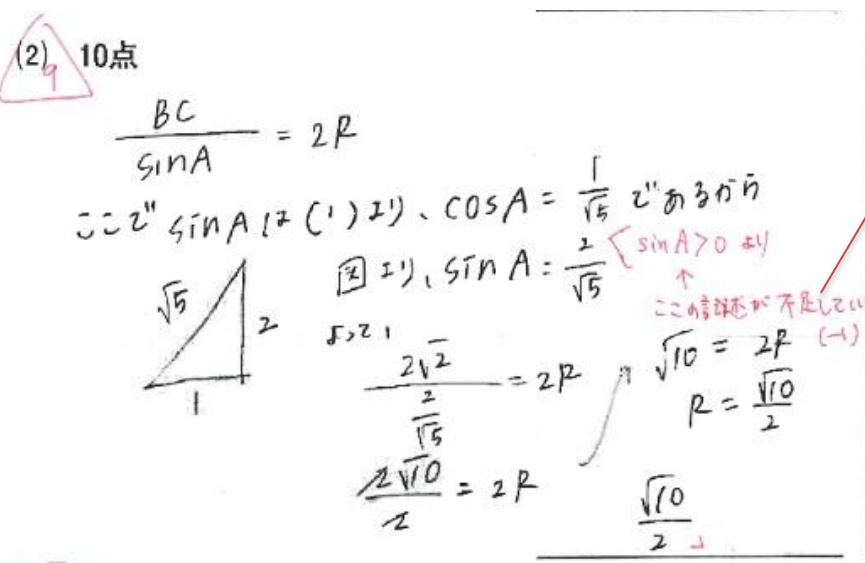 (2) 9 10点
BC/sinA = 2R
ここで sinAは(1)より、cosA = 1/√5 であるから
図より、sinA = 2/√5 sinA>0 より
↑
ここの記述が不足してい
(-1)
√5
2
1
よって、
2√2/(2/√5) = 2R
2√10/2 = 2R
√10 = 2R
R = √10/2
√10/2